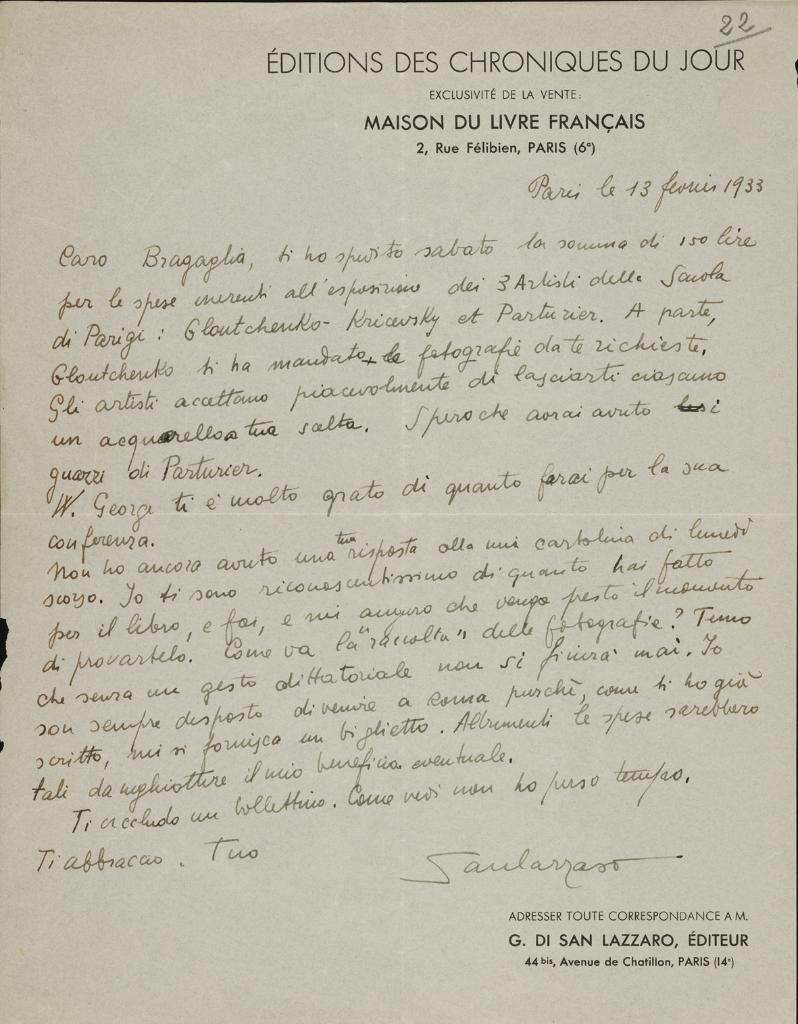 22
ÉDITIONS DES CHRONIQUES DU JOUR
EXCLUSIVITÉ DE LA VENTE:
MAISON DU LIVRE FRANÇAIS
2, Rue Félibien, PARIS (6e)
Paris le 13 fevrier 1933
Caro Bragaglia, ti ho spedito sabato la somma di 150 lire
per le spese inerenti all'esposizione dei 3 Artisti della Scuola
di Parigi: Gloutchenko - Kricevsky et Parturier. A parte,
Gloutchenko ti ha mandato le fotografie da te richieste.
Gli artisti accettano piacevolmente di lasciarti ciascuno
un acquarello a tua scelta. Spero che avrai avuto i
guazzi di Parturier.
W. George ti è molto grato di quanto farai per la sua
conferenza.
Non ho ancora avuto una tua risposta alla mia cartolina di lunedì
scorso. Io ti sono riconoscentissimo di quanto hai fatto
per il libro, e fai, e mi auguro che venga presto il momento
di provartelo. Come va la "raccolta" delle fotografie? Temo
che senza un gesto dittatoriale non si finirà mai. Io
son sempre disposto di venire a Roma purchè, come ti ho già
scritto, mi si fornisca un biglietto. Altrimenti le spese sarebbero
tali da inghiottire il mio beneficio eventuale.
Ti accludo un bollettino. Come vedi non ho perso tempo.
Ti abbraccio. Tuo
San Lazzaro
ADRESSER TOUTE CORRESPONDANCE A M.
G. DI SAN LAZZARO, ÉDITEUR
44 bis, Avenue de Chatillon, PARIS (14e)